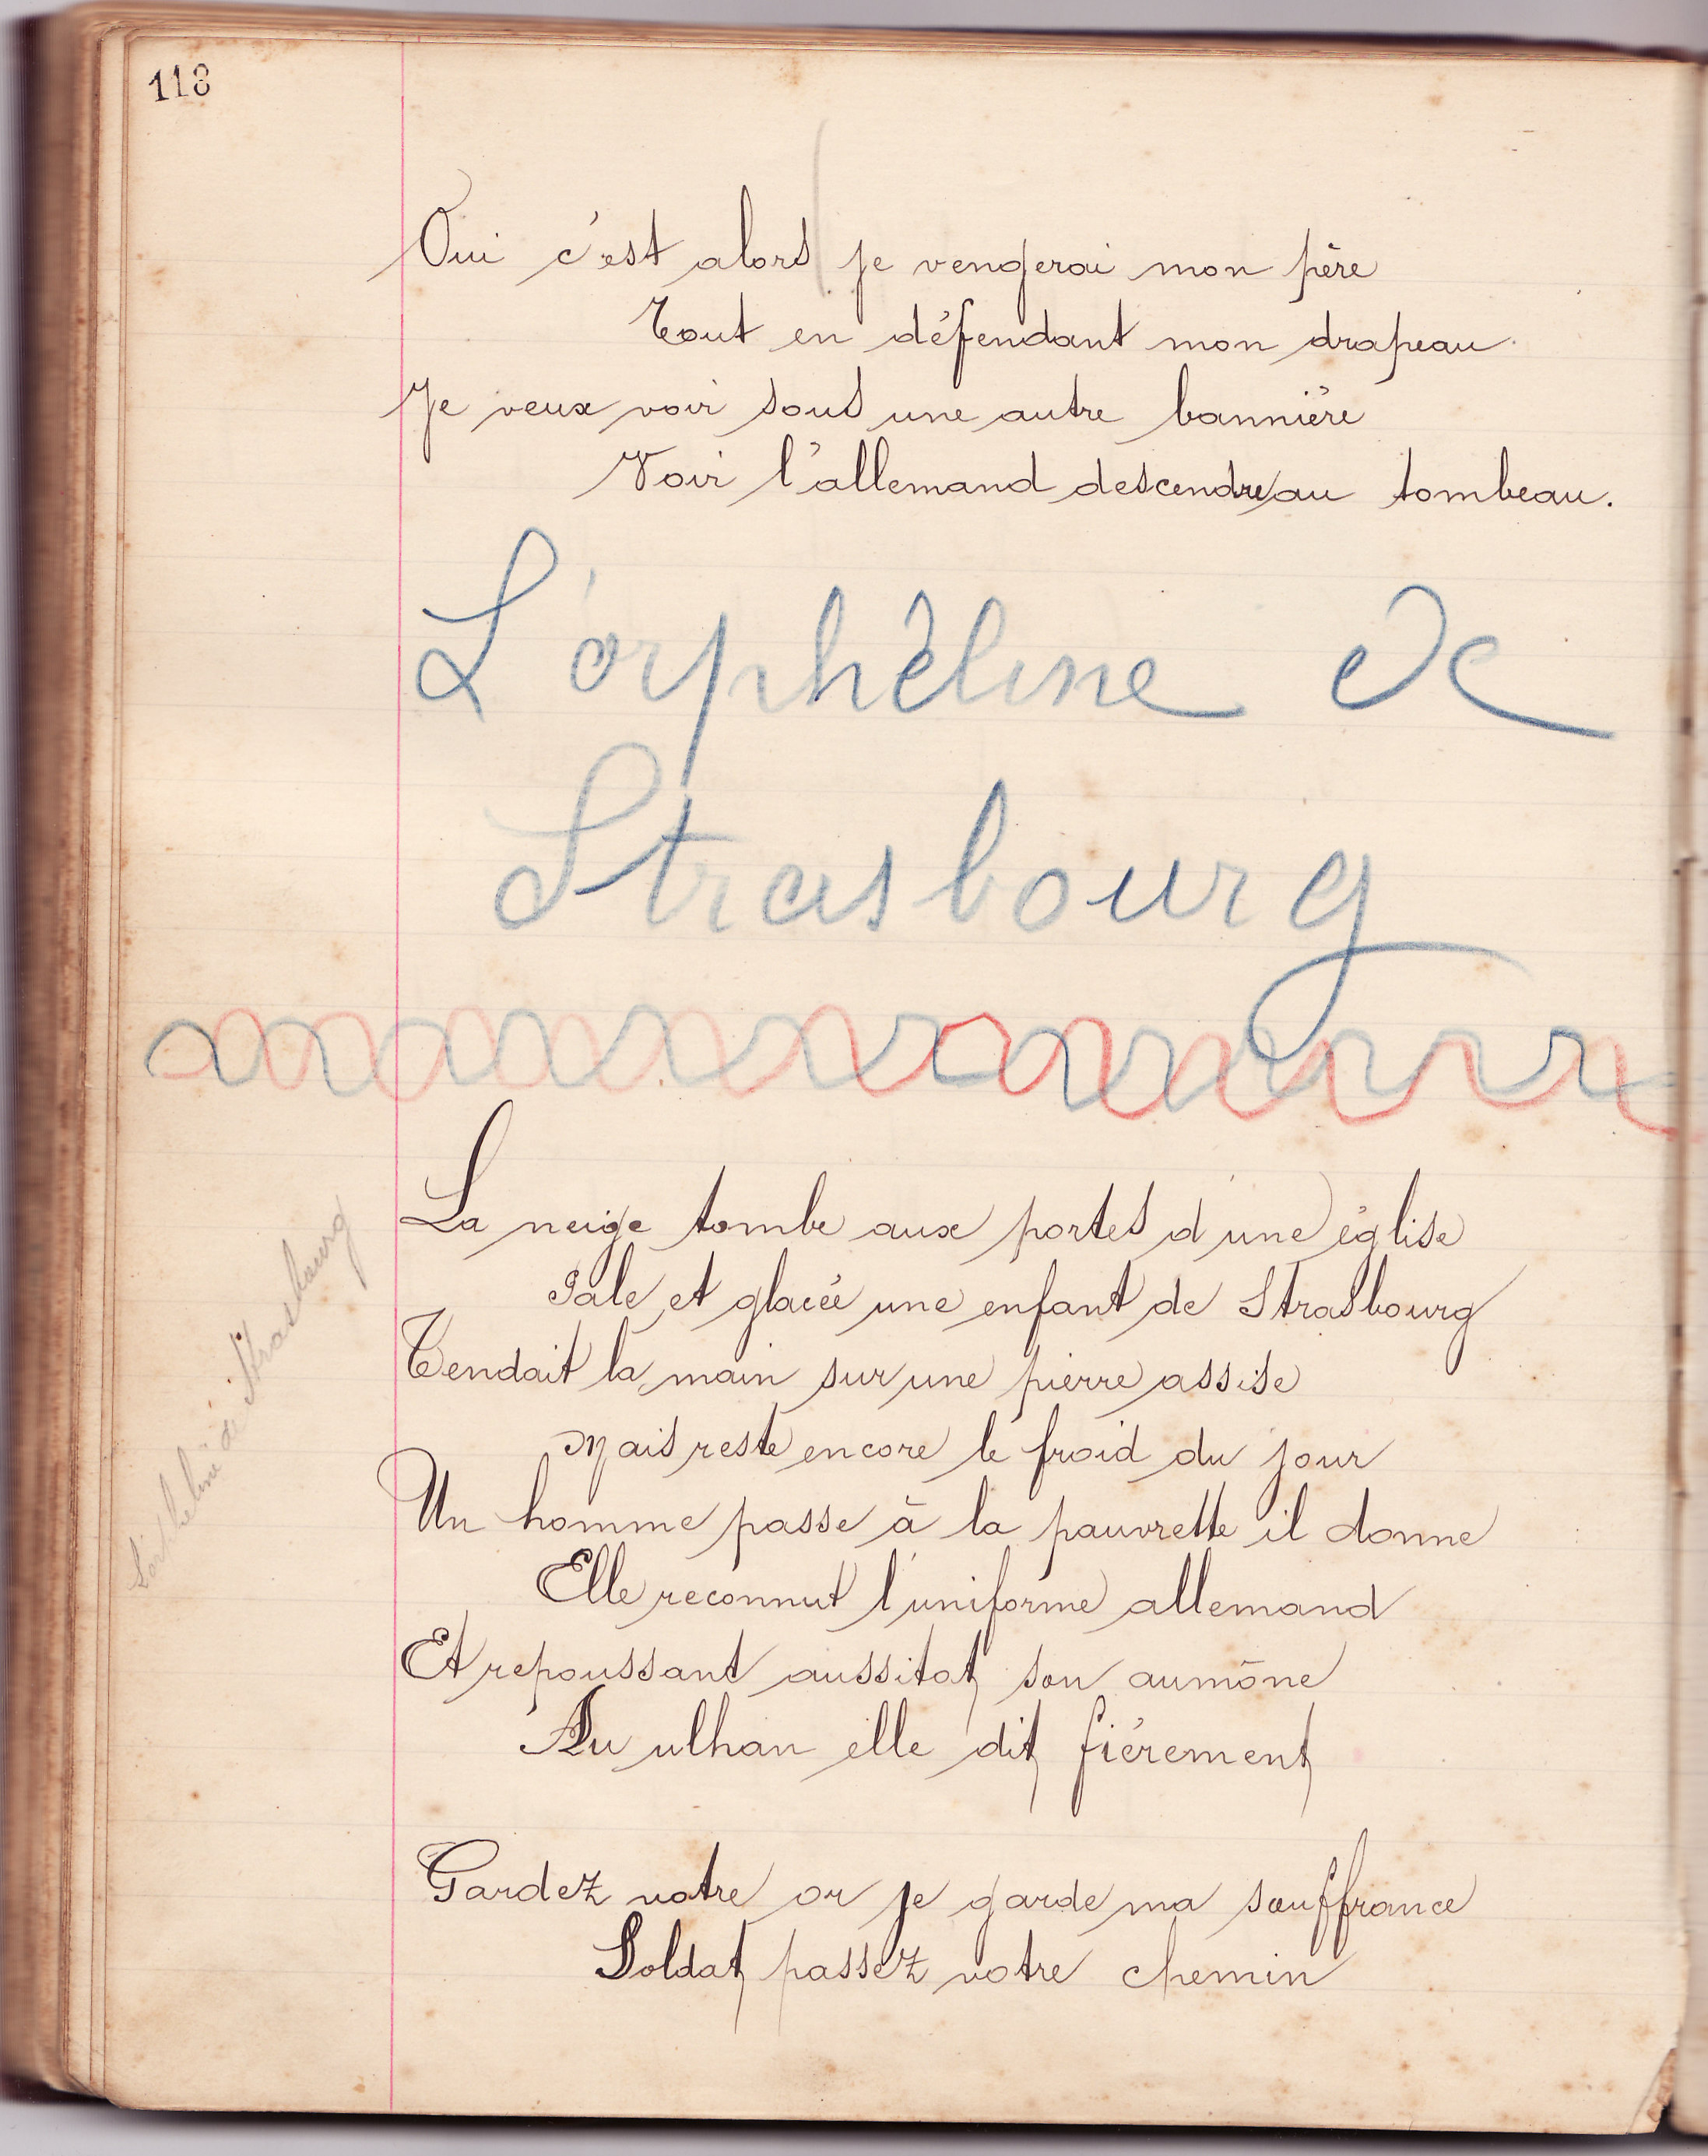 118
Oui c'est alors je vengerai mon père
Tout en défendant mon drapeau.
Je veux voir sous une autre bannière
Voir l'allemand descendre au tombeau.
L'orphèline de
Strasbourg
La neige tombe aux portes d'une église
Pale et glacée une enfant de Strasbourg
Tendait la main sur une pierre assise
Mais reste encore le froid du jour
Un homme passe à la pauvrette il donne
Elle reconnut l'uniforme allemand
Et repoussant aussitot son aumône
Au ulhan elle dit fièrement
Gardez votre or je garde ma souffrance
Soldat passez votre chemin
L'orpheline de Strasbourg